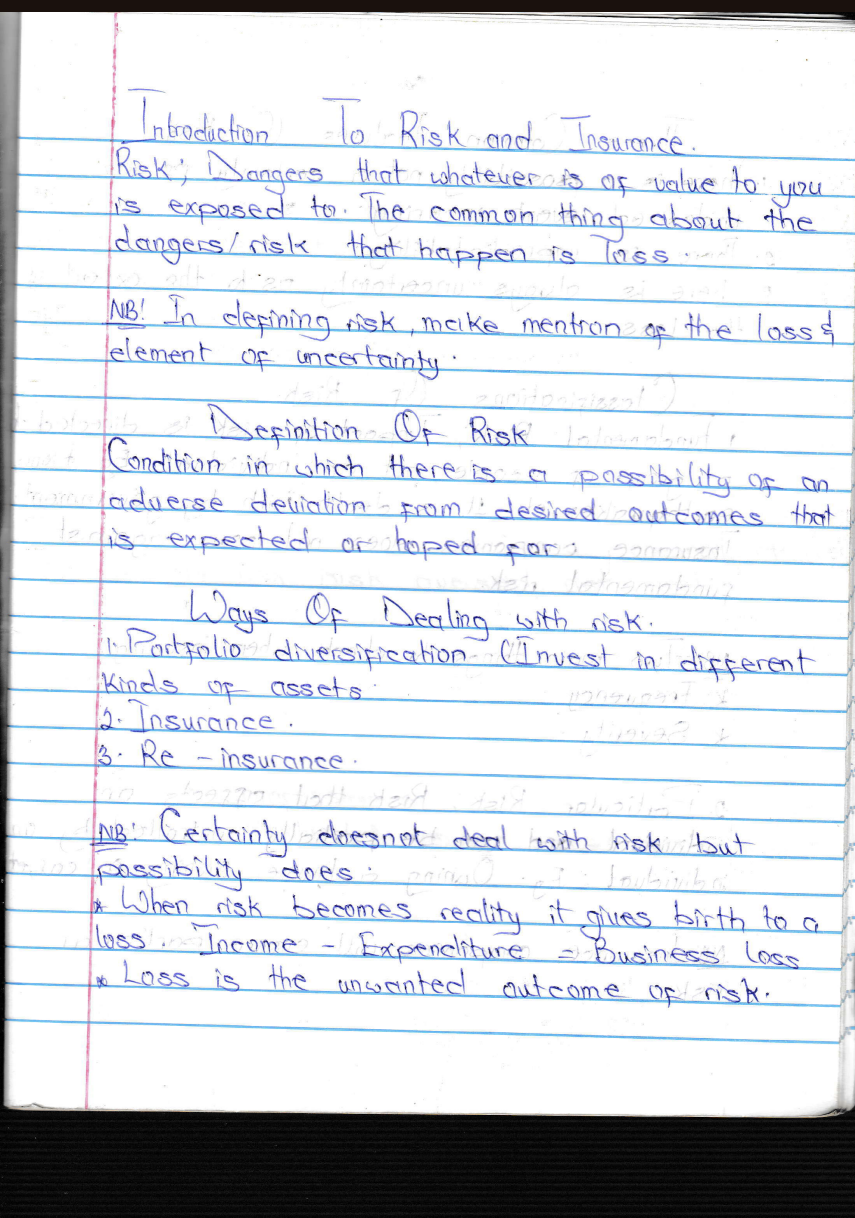 Introduction To Risk and Insurance.
Risk; Dangers that whatever is of value to you
is exposed to. The common thing about the
dangers/risk that happen is loss.
NB! In defining risk, make mention of the loss &
element of uncertainty.
Definition Of Risk
Condition in which there is a possibility of an
adverse deviation from desired outcomes that
is expected or hoped for.
Ways Of Dealing with risk.
1. Portfolio diversification (Invest in different
kinds of assets
2. Insurance.
3. Re-insurance.
NB: Certainty doesnot deal with risk but
possibility does.
* When risk becomes reality it gives birth to a
loss. Income - Expenditure = Business loss
* Loss is the unwanted outcome of risk.